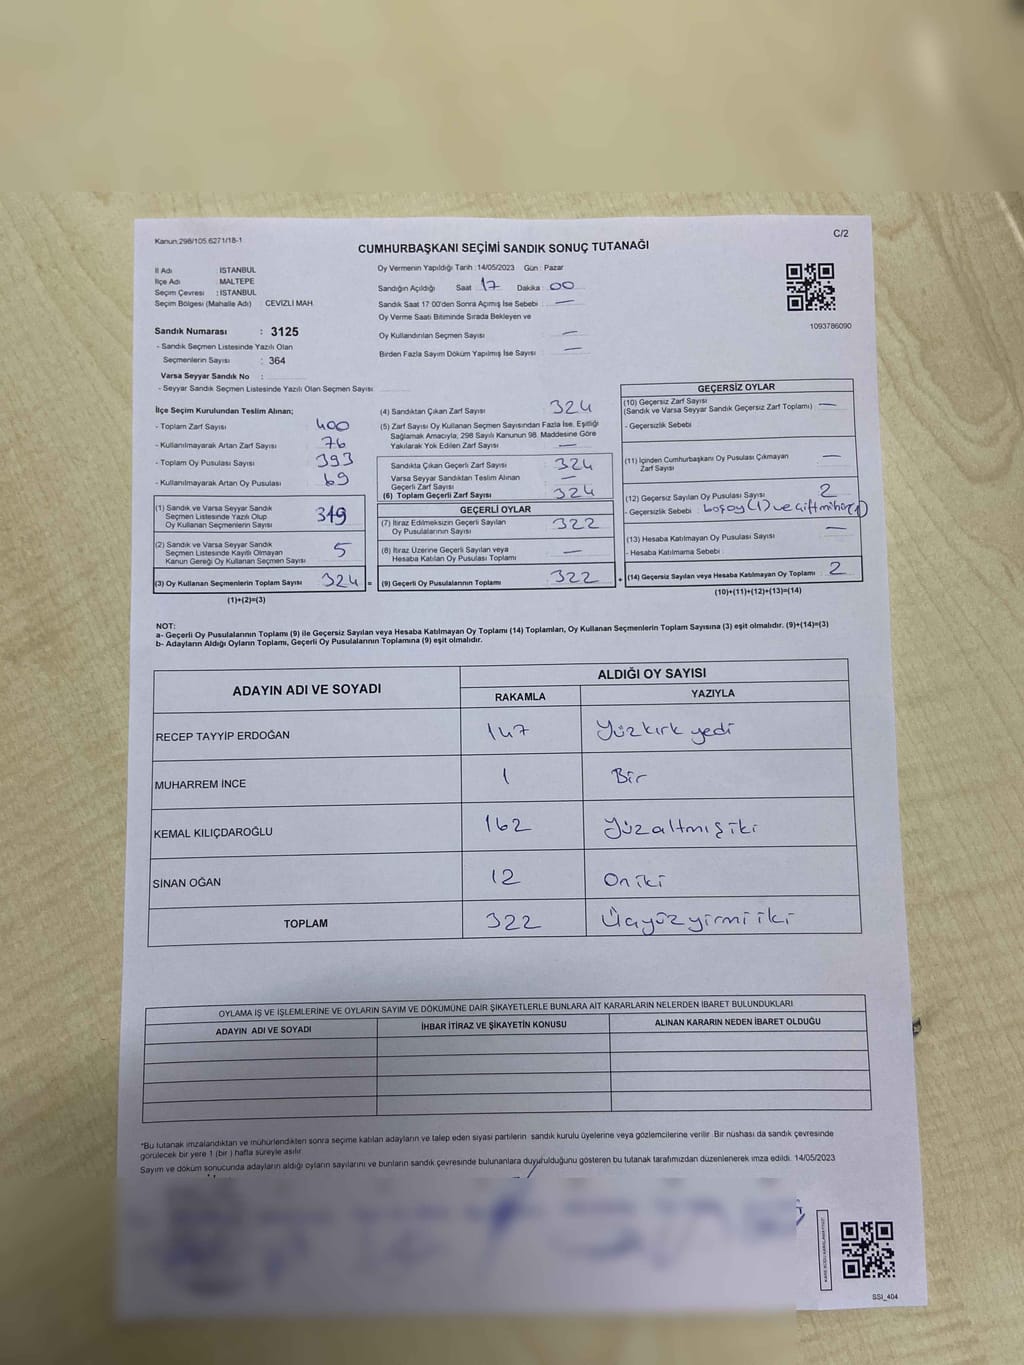 Kanun:298/105.6271/18-1
C/2
CUMHURBAŞKANI SEÇİMİ SANDIK SONUÇ TUTANAĞI
İl Adı : İSTANBUL
İlçe Adı : MALTEPE
Seçim Çevresi : İSTANBUL
Seçim Bölgesi (Mahalle Adı) CEVİZLİ MAH.
Sandık Numarası : 3125
- Sandık Seçmen Listesinde Yazılı Olan
Seçmenlerin Sayısı : 364
Varsa Seyyar Sandık No :
- Seyyar Sandık Seçmen Listesinde Yazılı Olan Seçmen Sayısı
Oy Vermenin Yapıldığı Tarih :14/05/2023 Gün : Pazar
Sandığın Açıldığı Saat 17 Dakika : 00
Sandık Saat 17:00'den Sonra Açımış İse Sebebi : —
Oy Verme Saati Bitiminde Sırada Bekleyen ve
Oy Kullandırılan Seçmen Sayısı —
Birden Fazla Sayım Döküm Yapılmış İse Sayısı —
1093786090
İlçe Seçim Kurulundan Teslim Alınan;
- Toplam Zarf Sayısı 400
- Kullanılmayarak Artan Zarf Sayısı 76
- Toplam Oy Pusulası Sayısı 393
- Kullanılmayarak Artan Oy Pusulası 69
(1) Sandık ve Varsa Seyyar Sandık
Seçmen Listesinde Yazılı Olup
Oy Kullanan Seçmenlerin Sayısı 319
(2) Sandık ve Varsa Seyyar Sandık
Seçmen Listesinde Kayıtlı Olmayan
Kanun Gereği Oy Kullanan Seçmen Sayısı 5
(3) Oy Kullanan Seçmenlerin Toplam Sayısı 324 =
(1)+(2)=(3)
(4) Sandıktan Çıkan Zarf Sayısı 324
(5) Zarf Sayısı Oy Kullanan Seçmen Sayısından Fazla İse, Eşitliği
Sağlamak Amacıyla, 298 Sayılı Kanunun 98. Maddesine Göre
Yakılarak Yok Edilen Zarf Sayısı —
Sandıkta Çıkan Geçerli Zarf Sayısı 324
Varsa Seyyar Sandıktan Teslim Alınan
Geçerli Zarf Sayısı —
(6) Toplam Geçerli Zarf Sayısı 324
GEÇERLİ OYLAR
(7) İtiraz Edilmeksizin Geçerli Sayılan
Oy Pusulalarının Sayısı 322
(8) İtiraz Üzerine Geçerli Sayılan veya
Hesaba Katılan Oy Pusulası Toplamı —
(9) Geçerli Oy Pusulalarının Toplamı 322 +
GEÇERSİZ OYLAR
(10) Geçersiz Zarf Sayısı
(Sandık ve Varsa Seyyar Sandık Geçersiz Zarf Toplamı) —
- Geçersizlik Sebebi
(11) İçinden Cumhurbaşkanı Oy Pusulası Çıkmayan
Zarf Sayısı —
(12) Geçersiz Sayılan Oy Pusulası Sayısı 2
- Geçersizlik Sebebi boş oy (1) ve çift mühür(1)
(13) Hesaba Katılmayan Oy Pusulası Sayısı —
- Hesaba Katılmama Sebebi
(14) Geçersiz Sayılan veya Hesaba Katılmayan Oy Toplamı 2
(10)+(11)+(12)+(13)=(14)
NOT:
a- Geçerli Oy Pusulalarının Toplamı (9) ile Geçersiz Sayılan veya Hesaba Katılmayan Oy Toplamı (14) Toplamları, Oy Kullanan Seçmenlerin Toplam Sayısına (3) eşit olmalıdır. (9)+(14)=(3)
b- Adayların Aldığı Oyların Toplamı, Geçerli Oy Pusulalarının Toplamına (9) eşit olmalıdır.
ADAYIN ADI VE SOYADI ALDIĞI OY SAYISI
RAKAMLA YAZIYLA
RECEP TAYYİP ERDOĞAN 147 Yüzkırk yedi
MUHARREM İNCE 1 Bir
KEMAL KILIÇDAROĞLU 162 Yüzaltmış iki
SİNAN OĞAN 12 On iki
TOPLAM 322 Üçyüz yirmi iki
OYLAMA İŞ VE İŞLEMLERİNE VE OYLARIN SAYIM VE DÖKÜMÜNE DAİR ŞİKAYETLERLE BUNLARA AİT KARARLARIN NELERDEN İBARET BULUNDUKLARI
ADAYIN ADI VE SOYADI İHBAR İTİRAZ VE ŞİKAYETİN KONUSU ALINAN KARARIN NEDEN İBARET OLDUĞU
*Bu tutanak imzalandıktan ve mühürlendikten sonra seçime katılan adayların ve talep eden siyasi partilerin sandık kurulu üyelerine veya gözlemcilerine verilir. Bir nüshası da sandık çevresinde
görülecek bir yere 1 (bir ) hafta süreyle asılır.
Sayım ve döküm sonucunda adayların aldığı oyların sayılarını ve bunların sandık çevresinde bulunanlara duyurulduğunu gösteren bu tutanak tarafımızdan düzenlenerek imza edildi. 14/05/2023
SSI_404